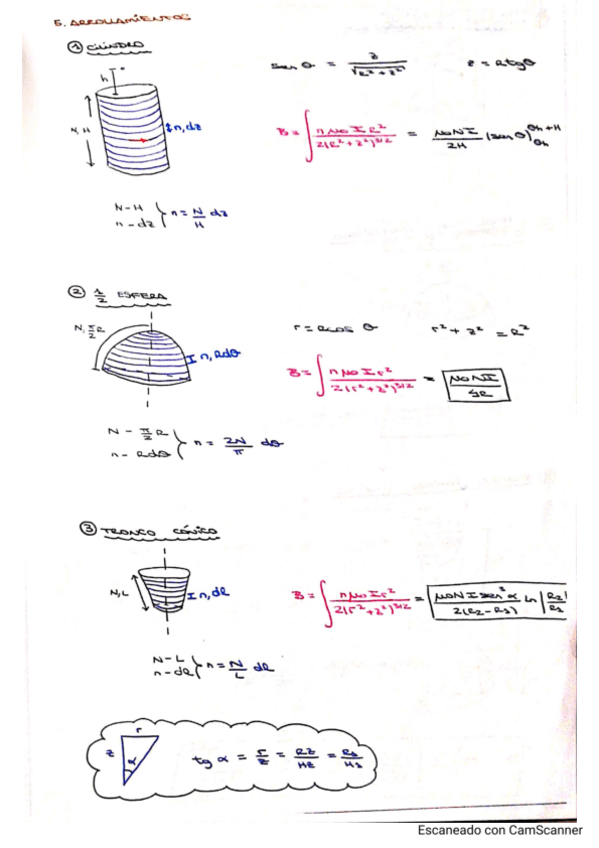 5. ARROLLAMIENTOS
① CILINDRO
h
sen θ = z / √(R² + z²)
z = R tg θ
N, H
n, dz
B = ∫ n μ0 I R² / 2(R² + z²)^3/2 = μ0 N I / 2H (sen θ)
N – H
n – dz
n = N/H dz
② 1/2 ESFERA
N, π/2 R
n, Rdθ
r = R cos θ
r² + z² = R²
B = ∫ n μ0 I r² / 2(r² + z²)^3/2 = μ0 N I / 4R
N – π/2 R
n – Rdθ
n = 2N/π dθ
③ TRONCO CÓNICO
N, L
n, dl
B = ∫ n μ0 I r² / 2(r² + z²)^3/2 = μ0 N I sen³ α / 2(R2 – R1) ln |R2/R1|
N – L
n – dl
n = N/L dl
r
z
α
tg α = r/z = R2/H2 = R1/H1
Escaneado con CamScanner